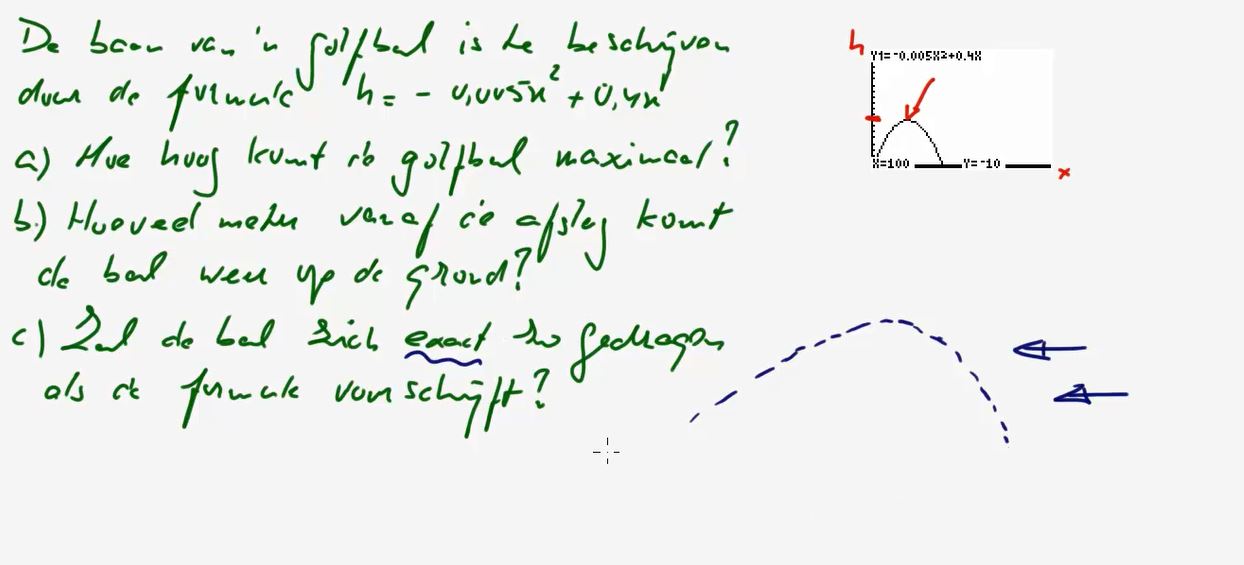 De baan van 'n golfbal is te beschrijven
door de formule h = - 0,005x² + 0,4x
a) Hoe hoog komt de golfbal maximaal?
b.) Hoeveel meter vanaf de afslag komt
de bal weer op de grond?
c) Zal de bal zich exact zo gedragen
als de formule voorschrijft?
h
Y1=-0.005X²+0.4X
X=100 Y=-10
x